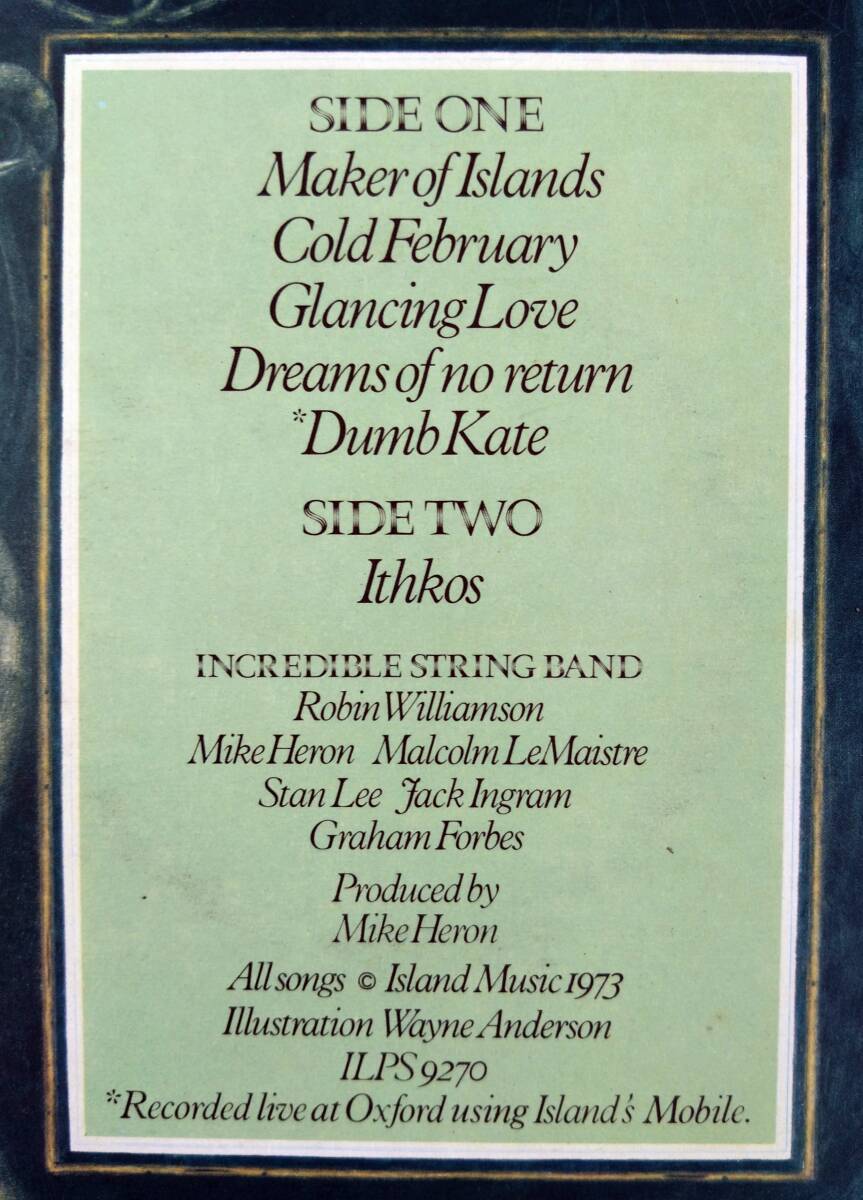 SIDE ONE
Maker of Islands
Cold February
Glancing Love
Dreams of no return
*Dumb Kate
SIDE TWO
Ithkos
INCREDIBLE STRING BAND
Robin Williamson
Mike Heron Malcolm LeMaistre
Stan Lee Jack Ingram
Graham Forbes
Produced by
Mike Heron
All songs © Island Music 1973
Illustration Wayne Anderson
ILPS 9270
*Recorded live at Oxford using Island's Mobile.